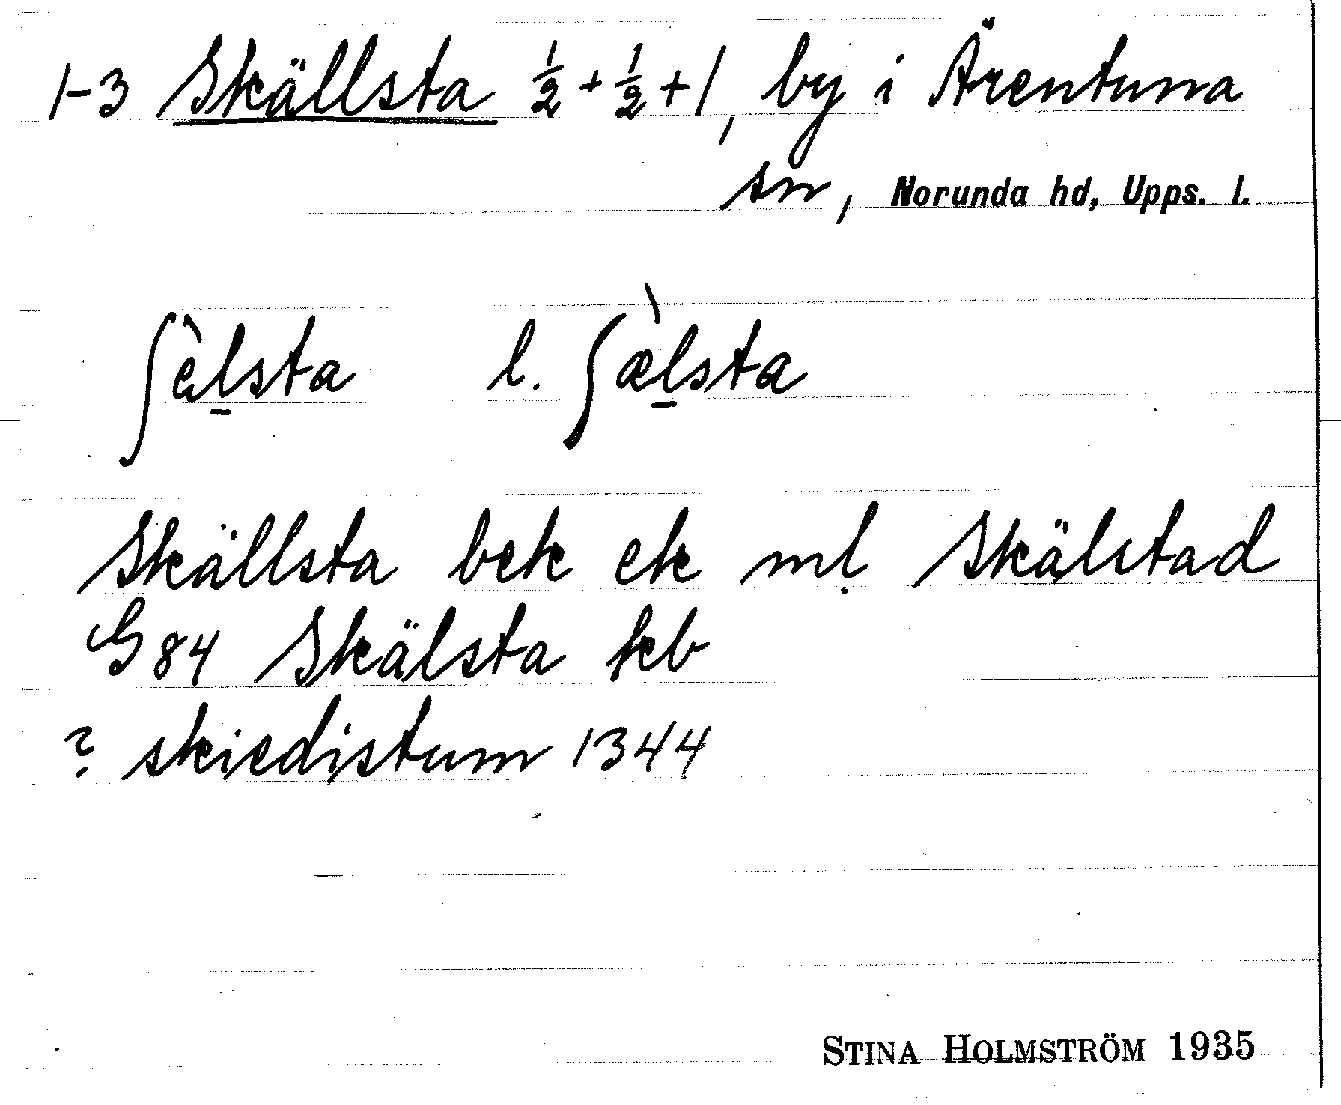 1-3 Skällsta ½ + ½ + 1, by i Ärentuna
sn, Norunda hd, Upps. l.
ʃèl̠sta l. ʃæ̀l̠sta
Skällsta bek ek ml Skälstad
G 84 Skälsta kb
? skiedistum 1344
STINA HOLMSTRÖM 1935